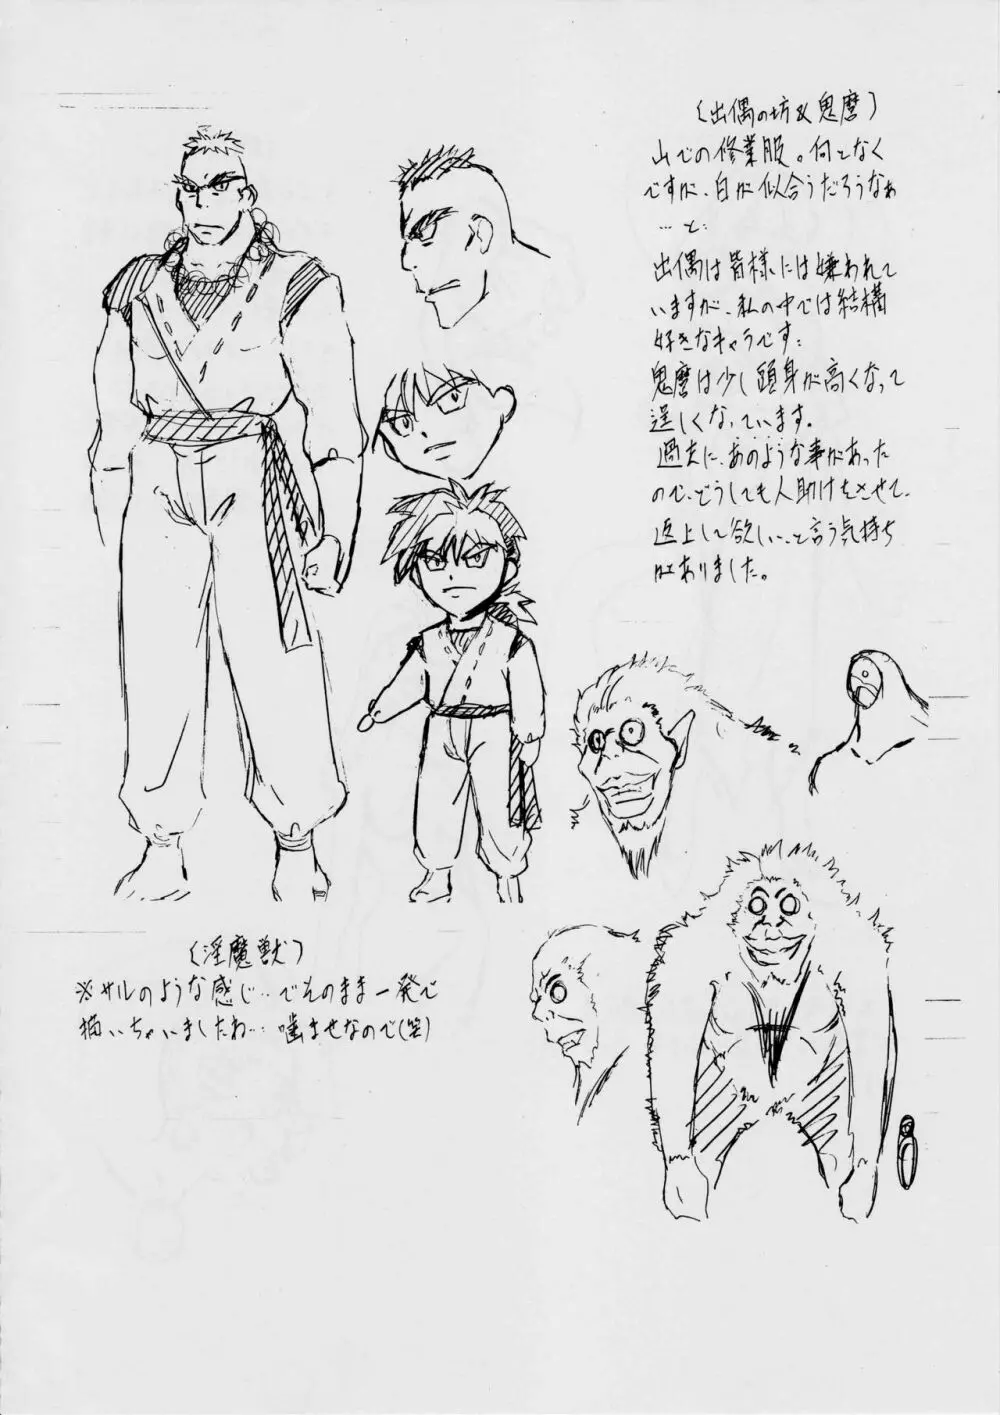 （出偶の坊&鬼麿）
山での修業服。何となく
ですが、白が似合うだろうなぁ
…と…
出偶は皆様には嫌われて
いますが、私の中では結構
好きなキャラです…
鬼麿は少し頭身が高くなって
逞しくなっています。
過去に、あのような事があった
ので、どうしても人助けをさせて、
返上して欲しい…と言う気持ち
はありました。
（淫魔獣）
※サルのような感じ…でそのまま一発で
描いちゃいましたね…噛ませなので(笑)